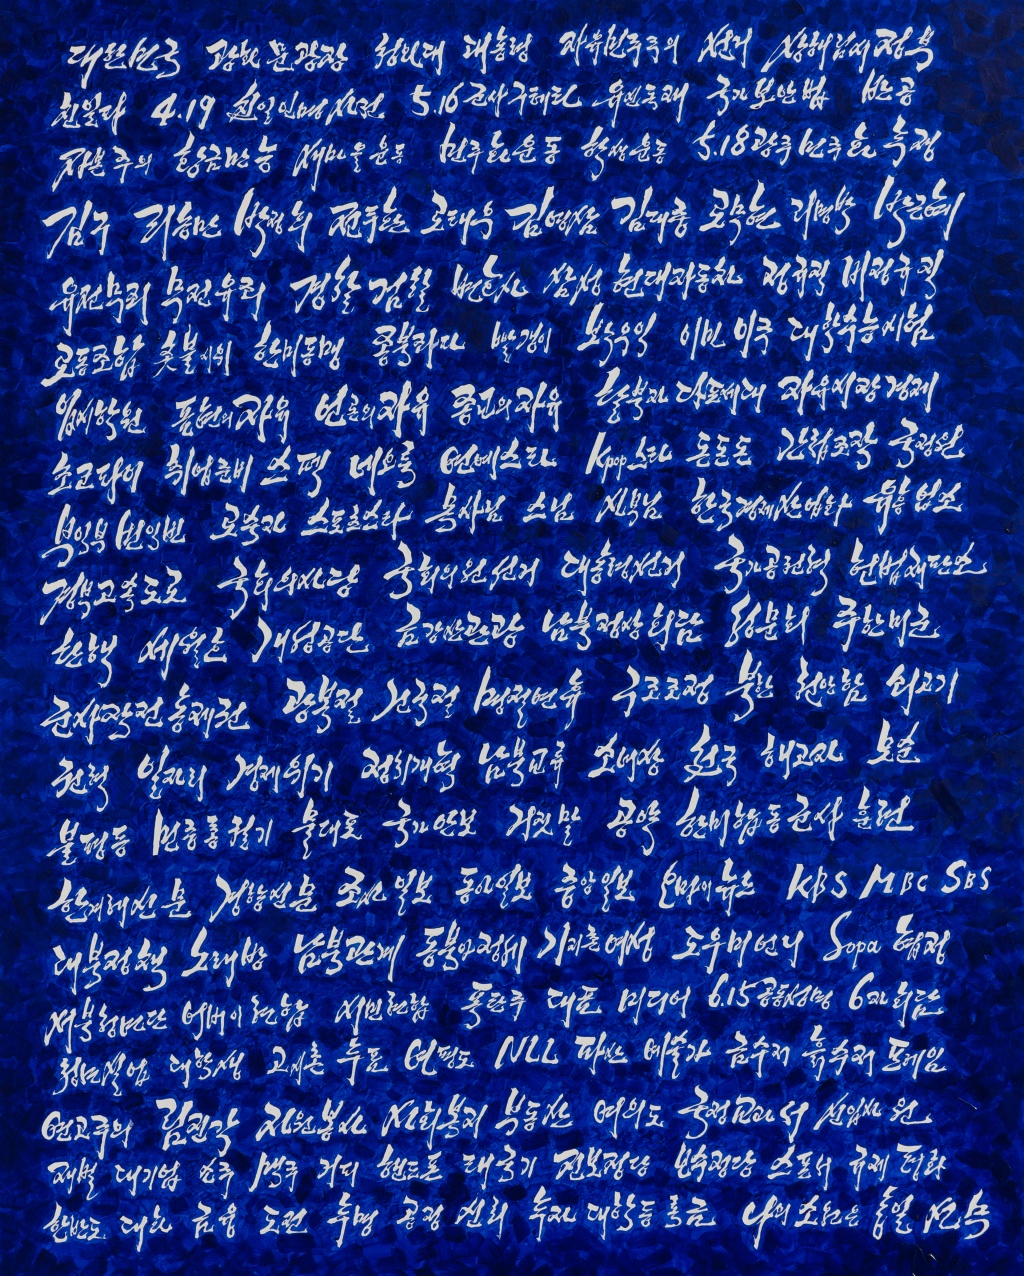 대한민국 광화문광장 청와대 대통령 자유민주주의 선거 상해임시정부
친일파 4.19 친일인명사전 5.16 군사구테타 유신독재 국가보안법 반공
자본주의 황금만능 새마을운동 민주화운동 학생운동 5.18광주민주화항쟁
김구 리승만 박정희 전두환 로태우 김영삼 김대중 로무현 리명박 박근혜
유전무죄 무전유죄 경찰 검찰 변호사 삼성 현대자동차 정규직 비정규직
로동조합 촛불시위 한미동맹 종북좌파 빨갱이 보수우익 이민 이주 대학수능시험
입시학원 표현의자유 언론의자유 종교의자유 탈북자 다표세대 자유시장경제
초코파이 취업준비 스펙 네오룩 연예스타 Kpop스타 돈돈돈 간첩조작 국정원
부익부 빈익빈 로숙자 스포츠스타 목사님 스님 신부님 한국경제산업화 유흥업소
경부고속도로 국회의사당 국회의원선거 대통령선거 국가공권력 헌법재판소
탄핵 세월호 개성공단 금강산관광 남북정상회담 청문회 주한미군
군사작전통제권 광복절 건국절 명절연휴 구조조정 북한 천안함 쇠고기
권력 일자리 경제위기 정치개혁 남북교류 소녀상 천국 해고자 모순
불평등 민중총궐기 물대포 국가안보 거짓말 공약 한미합동군사훈련
한겨레신문 경향신문 조선일보 동아일보 중앙일보 오마이뉴스 KBS MBC SBS
대북정책 노래방 남북관계 동북아정세 기지촌여성 도우미언니 Sopa 협정
서북청년단 어버이연합 서민연합 폭탄주 대포 미디어 6.15공동성명 6자회담
청년실업 대학생 고시촌 투표 연평도 NLL 파산 예술가 금수저 흙수저 프레임
연고주의 림진각 자원봉사 사회복지 부동산 여의도 국정교과서 신입사원
재벌 대기업 소주 맥주 거지 핸드폰 태극기 진보정당 보수정당 스포츠 규제 평화
한반도 대화 금융 도전 투명 공정 사회 투자 대학등록금 나의 소원은 통일 선무